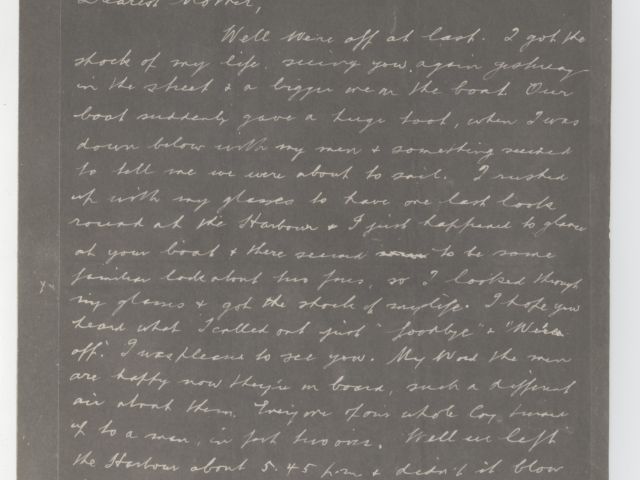 Dearest Mother,
Well we're off at last. I got the
shock of my life seeing you again yesterday
in the street & a bigger one on the boat. Our
boat suddenly gave a huge toot, when I was
down below with my men & something seemed
to tell me we were about to sail. I rushed
up with my glasses to have one last look
round at the Harbour & I just happened to glance
at your boat & there seemed to be some
familiar look about two , so I looked through
my glasses & got the shock of my life. I hope you
heard what I called out just "Goodbye" & "We're
off". I was pleased to see you. My Word the men
are happy now they're on board, such a different
air about them. Everyone of our whole Coy turned
up to a man, in fact two overs. Well we left
the Harbour about 5.45 p.m & didn't it blow